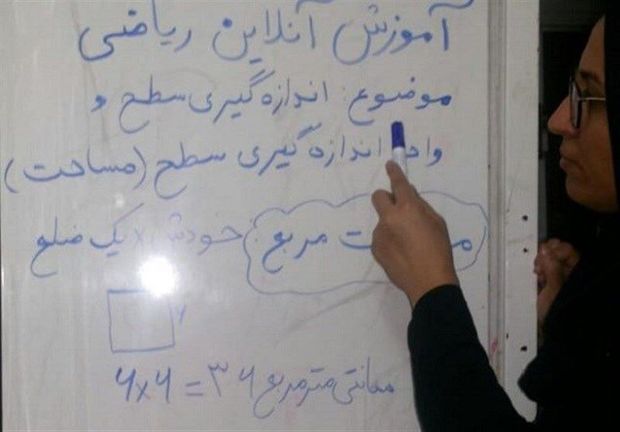 آموزش آنلاین ریاضی
موضوع: اندازه گیری سطح و
واحد اندازه گیری سطح (مساحت)
مربع : خودش × یک ضلع
۶
۶×۶ = ۳۶ سانتی متر مربع